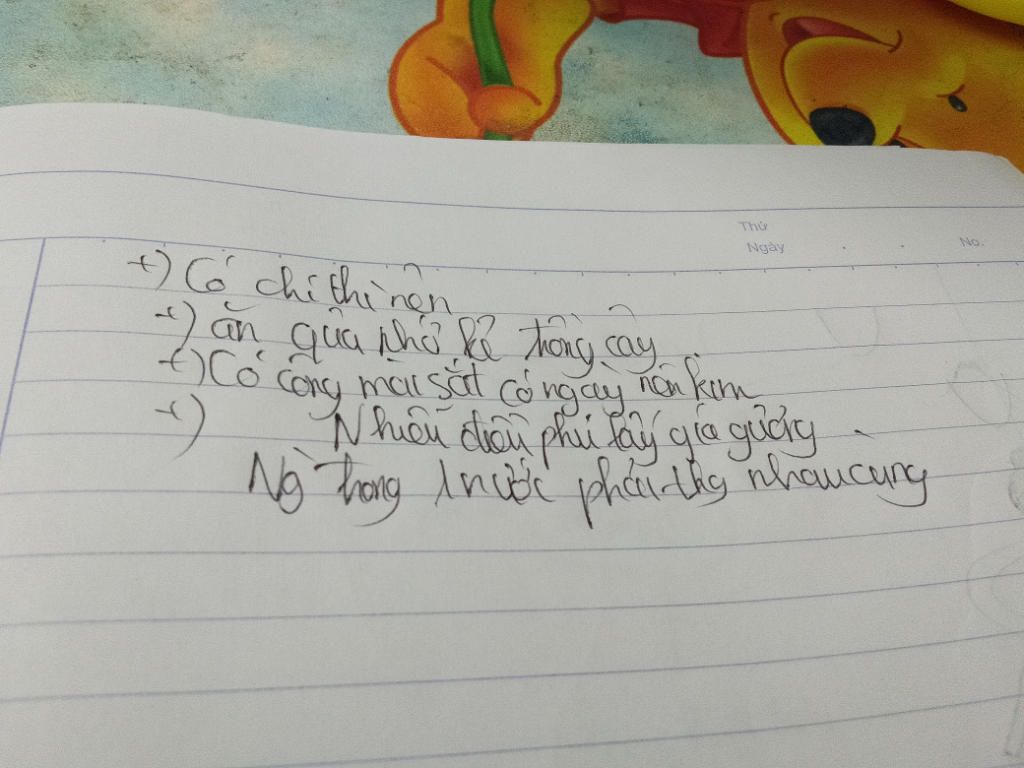 Thứ
Ngày . . No.
+) Có chí thì nên
+) ăn quả nhớ kẻ trồng cây
+) Có công mài sắt có ngày nên kim
+) Nhiễu điều phủ lấy giá gương
Ng trong 1 nước phải thg nhau cùng